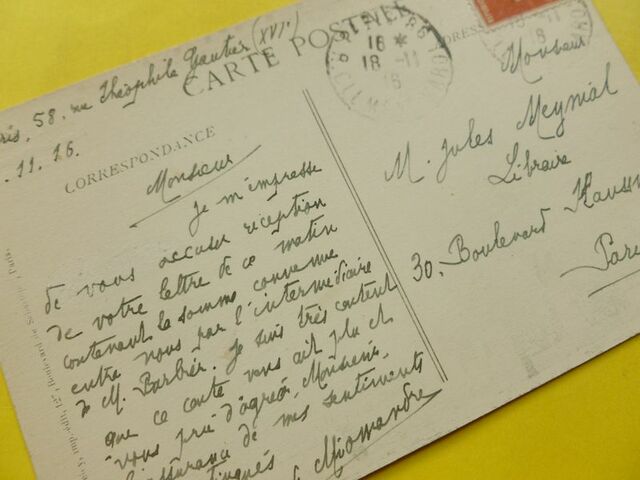 CARTE POSTALE
58, rue Théophile Gautier (XVIe)
.11.16.
CORRESPONDANCE
Monsieur
Je m'empresse
de vous accuser réception
de votre lettre de ce matin
contenant la somme convenue
entre nous par l'intermédiaire
de M. Barbier. Je suis très content
que ce conte vous ait plu et
vous prie d'agréer, Monsieur,
l'assurance de mes sentiments
Miomandre
16 *
18 -11
16
Monsieur
M. Jules Meynial
Libraire
30. Boulevard Haussm
Pari